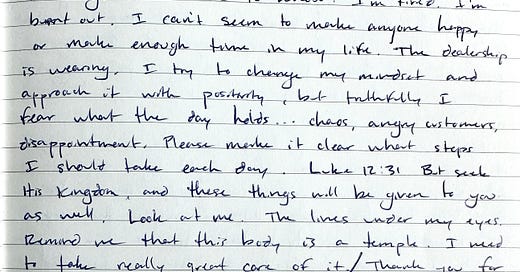 I'm tired. I'm
burnt out. I can't seem to make anyone happy
or make enough time in my life. The dealership
is wearing. I try to change my mindset and
approach it with positivity, but truthfully I
fear what the day holds... chaos, angry customers,
disappointment. Please make it clear what steps
I should take each day. Luke 12:31 But seek
His Kingdom, and these things will be given to you
as well. Look at me. The lines under my eyes.
Remind me that this body is a temple. I need
to take really great care of it. / Thank you for